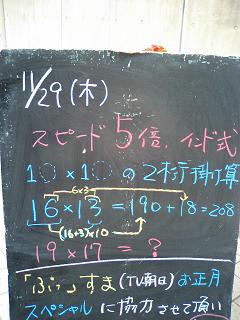 11/29(木)
スピード5倍、インド式
1○×1○の2桁掛算
6×3
16×13=190+18=208
(16+3)×10
19×17=?
「ぷっ」すま(TV朝日)お正月
スペシャルに協力させて頂い